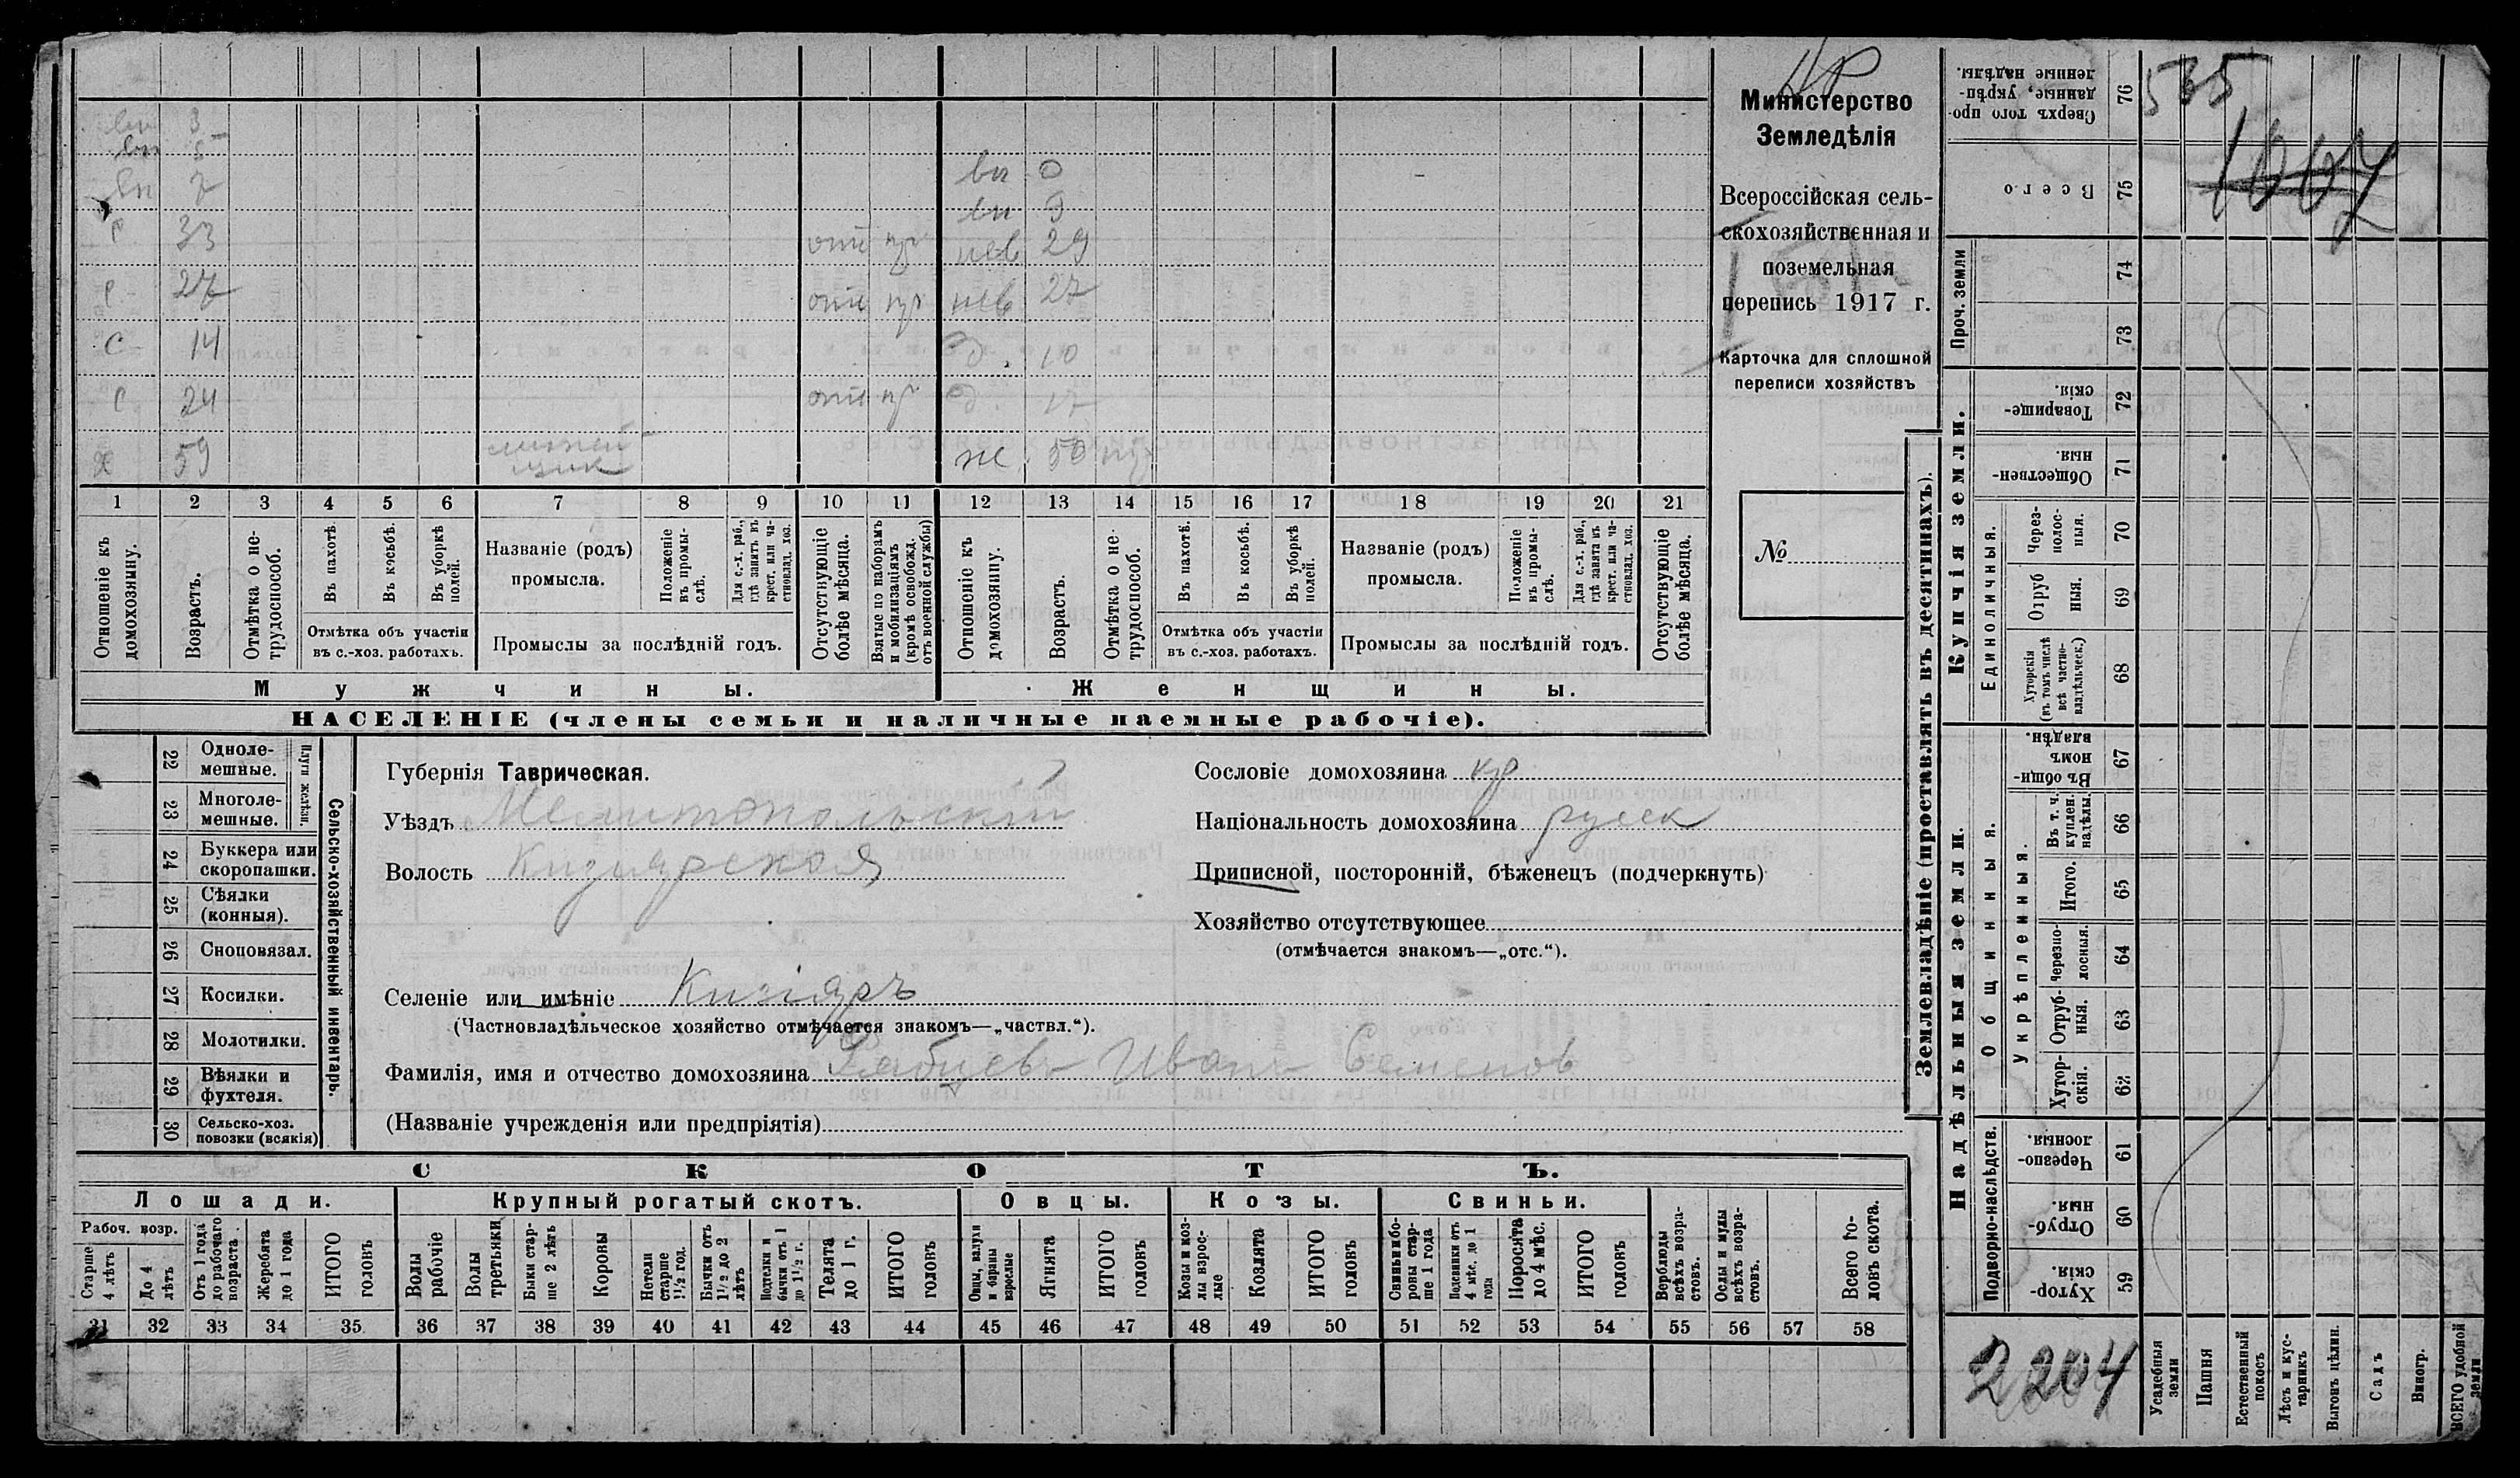 НР
Министерство
Земледѣлія
Всероссійская сель-
скохозяйственная и
поземельная
перепись 1917 г.
Карточка для сплошной
переписи хозяйствъ
№
вн 3
вн 5
вн 7 вн 0
р 33 вн 9
отп пр нев 29
р 27 отп пр нев 27
с 14 д. 10
с 24 отп пр д. 17
х 59 ж. 50
1 2 3 4 5 6 7 8 9 10 11 12 13 14 15 16 17 18 19 20 21
Отношеніе къ домохозяину.
Возрастъ.
Отмѣтка о не-трудоспособ.
Въ пахотѣ.
Въ косьбѣ.
Въ уборкѣ полей.
Отмѣтка объ участіи
въ с.-хоз. работахъ.
Названіе (родъ)
промысла.
Положеніе въ промы-слѣ.
Для с.-х. раб., гдѣ занятъ въ крест. или ча-стновлад. хоз.
Промыслы за послѣдній годъ.
Отсутствующіе болѣе мѣсяца.
Взятые по наборамъ и мобилизаціямъ (кромѣ освобожд. отъ военной службы)
Отношеніе къ домохозяину.
Возрастъ.
Отмѣтка о не-трудоспособ.
Въ пахотѣ.
Въ косьбѣ.
Въ уборкѣ полей.
Отмѣтка объ участіи
въ с.-хоз. работахъ.
Названіе (родъ)
промысла.
Положеніе въ промы-слѣ.
Для с.-х. раб., гдѣ занята въ крест. или ча-стновлад. хоз.
Промыслы за послѣдній годъ.
Отсутствующіе болѣе мѣсяца.
Мужчины.
Женщины.
НАСЕЛЕНІЕ (члены семьи и наличные наемные рабочіе).
22 Одноле-мешные.
23 Многоле-мешные.
Плуги желѣзн.
24 Буккера или скоропашки.
25 Сѣялки (конныя).
26 Сноповязал.
27 Косилки.
28 Молотилки.
29 Вѣялки и фухтеля.
30 Сельско-хоз. повозки (всякія)
Сельско-хозяйственный инвентарь.
Губернія Таврическая.
Уѣздъ Мелитопольскій
Волость Кизіярская
Селеніе или имѣніе Кизіяръ
(Частновладѣльческое хозяйство отмѣчается знакомъ—„частвл.“).
Фамилія, имя и отчество домохозяина Рябцевъ Иванъ Семенов
(Названіе учрежденія или предпріятія)
Сословіе домохозяина кр
Національность домохозяина русск
Приписной, посторонній, бѣженецъ (подчеркнуть)
Хозяйство отсутствующее
(отмѣчается знакомъ—„отс.“).
СКОТЪ.
Лошади.
Крупный рогатый скотъ.
Овцы.
Козы.
Свиньи.
Рабоч. возр.
Старше 4 лѣтъ
До 4 лѣтъ
Отъ 1 года до рабочаго возраста
Жеребята до 1 года
ИТОГО головъ
Волы рабочіе
Волы третьяки
Быки стар-ше 2 лѣтъ
Коровы
Нетели старше 1½ год.
Бычки отъ 1½ до 2 лѣтъ
Подтелки и бычки отъ 1 до 1½ г.
Телята до 1 г.
ИТОГО головъ
Овцы, валухи и бараны взрослые
Ягнята
ИТОГО головъ
Козы и коз-лы взрос-лые
Козлята
ИТОГО головъ
Свиньи и бо-ровы стар-ше 1 года
Подсвинки отъ 4 мѣс. до 1 года
Поросята до 4 мѣс.
ИТОГО головъ
Верблюды всѣхъ возра-стовъ.
Ослы и мулы всѣхъ возра-стовъ.
Всего го-ловъ скота.
31 32 33 34 35 36 37 38 39 40 41 42 43 44 45 46 47 48 49 50 51 52 53 54 55 56 57 58
Землевладѣніе (проставлять въ десятинахъ).
Надѣльныя земли.
Купчія земли.
Проч. земли
Подворно-наслѣдств.
Общинныя.
Укрѣпленныя.
Единоличныя.
76 Сверхъ того про-данные, укрѣп-ленные надѣлы.
75 Всего
74
73
72 Товарище-скія.
71 Обществен-ныя.
70 Через-полос-ныя.
69 Отруб ныя.
68 Хуторскія (въ томъ числѣ всѣ частно-владѣльческ.)
67 Въ общи-номъ владѣн.
66 Въ т. ч. куплен. надѣлы.
65 Итого.
64 Черезпо-лосныя.
63 Отруб-ныя.
62 Хутор-скія.
61 Черезпо-лосныя.
60 Отруб-ныя.
59 Хутор-скія.
Усадебныя земли
Пашня
Естественный покосъ
Лѣсъ и кус-тарникъ
Выгонъ цѣлин.
Садъ
Виногр.
ВСЕГО удобной земли
535
1007
2204